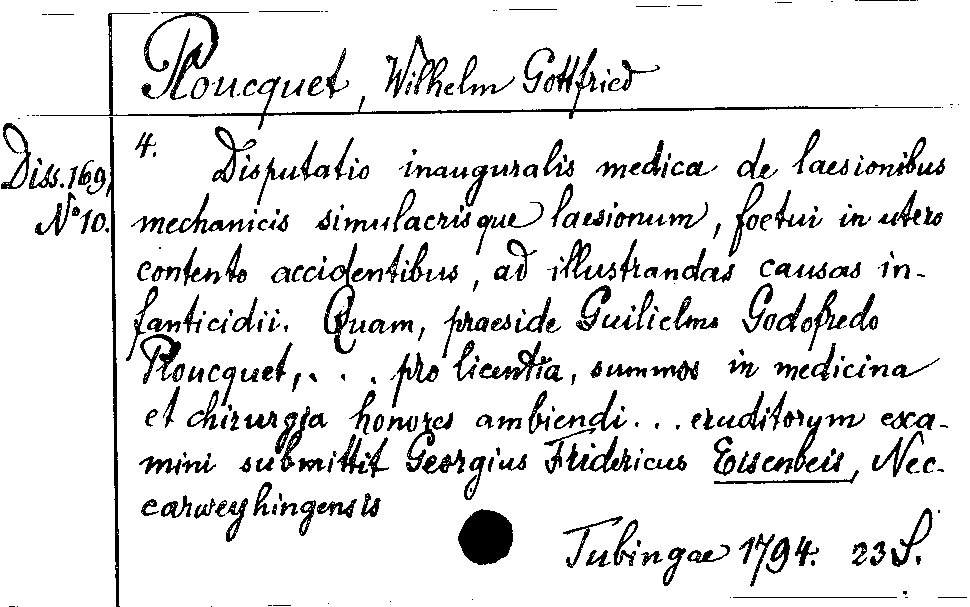 Ploucquet, Wilhelm Gottfried
Diss. 169,
No 10.
4. Disputatio inauguralis medica de laesionibus
mechanicis simulacrisque laesionum, foetui in utero
contento accidentibus, ad illustrandas causas in-
fanticidii. Quam, praeside Guilielmo Godofredo
Ploucquet, . . . pro licentia, summos in medicina
et chirurgia honores ambiendi... eruditorum exa-
mini submittit Georgius Fridericus Eisenbeis, Nec-
carweyhingensis
Tubingae 1794. 23 S.